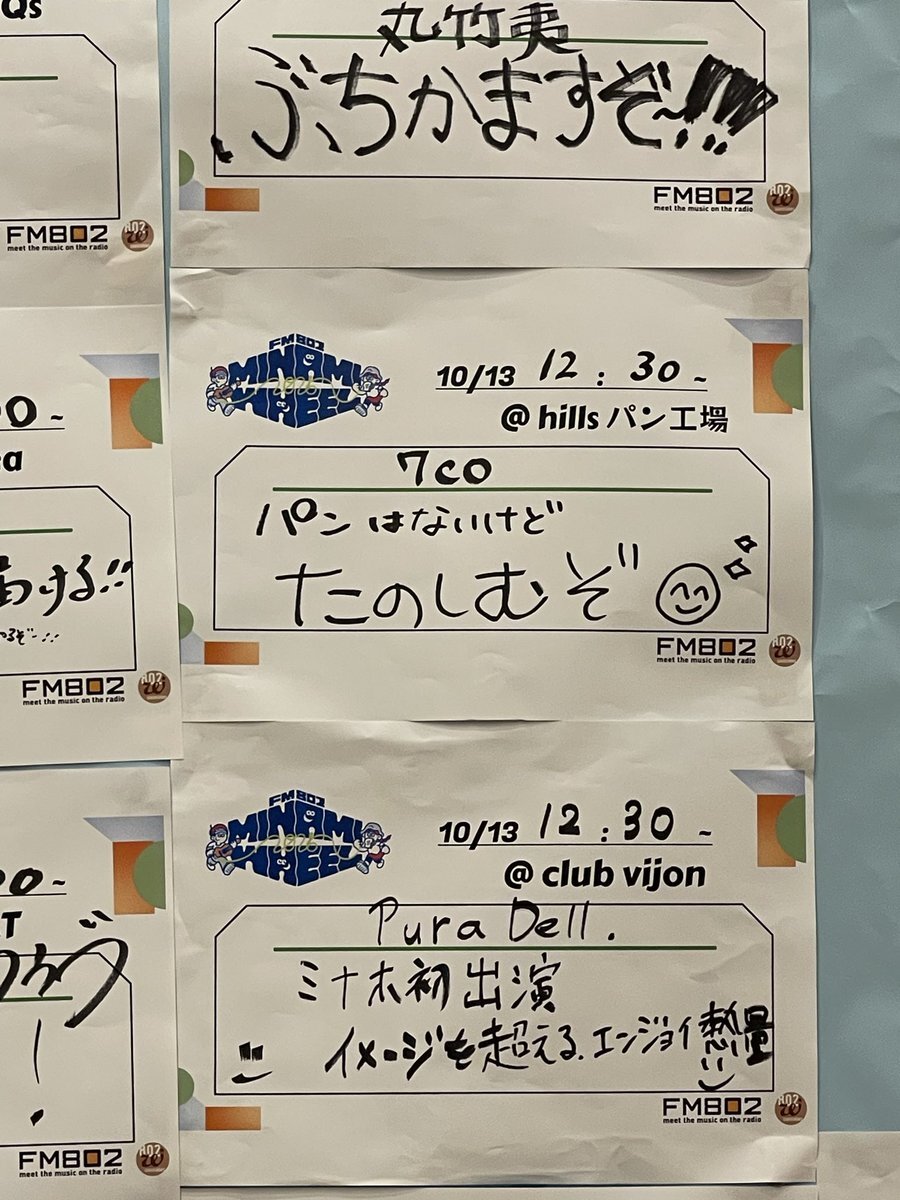 Qs
FM802
meet the music on the radio
802
丸竹夷
ぶちかますぞ〜!!!
FM802
meet the music on the radio
802
0~
a
届ける!!
やるぞー!!
FM802
meet the music on the radio
802
FM802
MINAMI
2025
WHEEL
10/13 12:30~
@ hills パン工場
7co
パンはないけど
たのしむぞ
FM802
meet the music on the radio
802
00~
T
FM802
meet the music on the radio
FM802
MINAMI
2025
WHEEL
10/13 12:30~
@ club vijon
Pura Dell.
ミナホ初出演
イメージを超える、エンジョイ熱量
FM802
meet the music on the radio
802